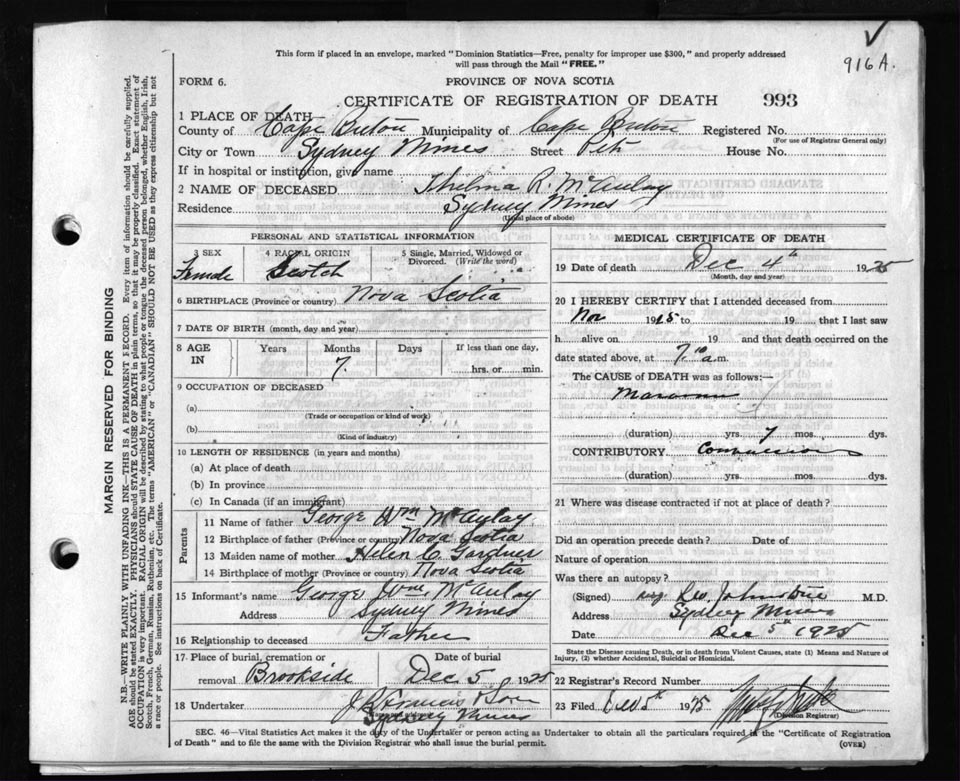 ✓
916A.
This form if placed in an envelope, marked "Dominion Statistics—Free, penalty for improper use $300," and properly addressed
will pass through the Mail "FREE."
FORM 6.
PROVINCE OF NOVA SCOTIA
CERTIFICATE OF REGISTRATION OF DEATH 993
1 PLACE OF DEATH
County of Cape Breton Municipality of Cape Breton Registered No.
(For use of Registrar General only)
City or Town Sydney Mines Street House No.
If in hospital or institution, give name
2 NAME OF DECEASED Thelma R. McAulay
Residence Sydney Mines
(Usual place of abode)
PERSONAL AND STATISTICAL INFORMATION
3 SEX 4 RACIAL ORIGIN 5 Single, Married, Widowed or Divorced. (Write the word)
Female Scotch
6 BIRTHPLACE (Province or country) Nova Scotia
7 DATE OF BIRTH (month, day and year)
8 AGE IN Years Months Days If less than one day,
7 hrs. or min.
9 OCCUPATION OF DECEASED
(a)
(Trade or occupation or kind of work)
(b)
(Kind of industry)
10 LENGTH OF RESIDENCE (in years and months)
(a) At place of death
(b) In province
(c) In Canada (if an immigrant)
Parents
11 Name of father George Wm McAulay
12 Birthplace of father (Province or country) Nova Scotia
13 Maiden name of mother Helen C. Gardner
14 Birthplace of mother (Province or country) Nova Scotia
15 Informant's name George Wm McAulay
Address Sydney Mines
16 Relationship to deceased Father
17 Place of burial, cremation or removal Brookside Date of burial Dec 5 1925
18 Undertaker J. Francis & Son
Sydney Mines
MEDICAL CERTIFICATE OF DEATH
19 Date of death Dec 4th 1925
(Month, day and year)
20 I HEREBY CERTIFY that I attended deceased from
Nov 1925 to 19 that I last saw
h alive on 19 and that death occurred on the
date stated above, at 7.10 a.m.
The CAUSE of DEATH was as follows:—
Marasmus
(duration) yrs. 7 mos. dys.
CONTRIBUTORY Convulsions
(duration) yrs. mos. dys.
21 Where was disease contracted if not at place of death?
Did an operation precede death? Date of
Nature of operation
Was there an autopsy?
(Signed) Johnstone M.D.
Address Sydney Mines
Date Dec 5th 1925
State the Disease causing Death, or in death from Violent Causes, state (1) Means and Nature of
Injury, (2) whether Accidental, Suicidal or Homicidal.
22 Registrar's Record Number
23 Filed 19
(Division Registrar)
SEC. 46—Vital Statistics Act makes it the duty of the Undertaker or person acting as Undertaker to obtain all the particulars required in the "Certificate of Registration
of Death" and to file the same with the Division Registrar who shall issue the burial permit. (OVER)
MARGIN RESERVED FOR BINDING
N.B.—WRITE PLAINLY WITH UNFADING INK—THIS IS A PERMANENT RECORD. Every item of information should be carefully supplied.
AGE should be stated EXACTLY. PHYSICIANS should STATE CAUSE OF DEATH in plain terms, so that it may be properly classified. Exact statement of
OCCUPATION is very important. RACIAL ORIGIN will be described by stating to what people or tongue the deceased person belonged, whether English, Irish,
Scotch, French, German, Russian, Ruthenian, etc. The terms "AMERICAN" or "CANADIAN" SHOULD NOT BE USED as they express citizenship but not
a race or people. See instructions on back of Certificate.